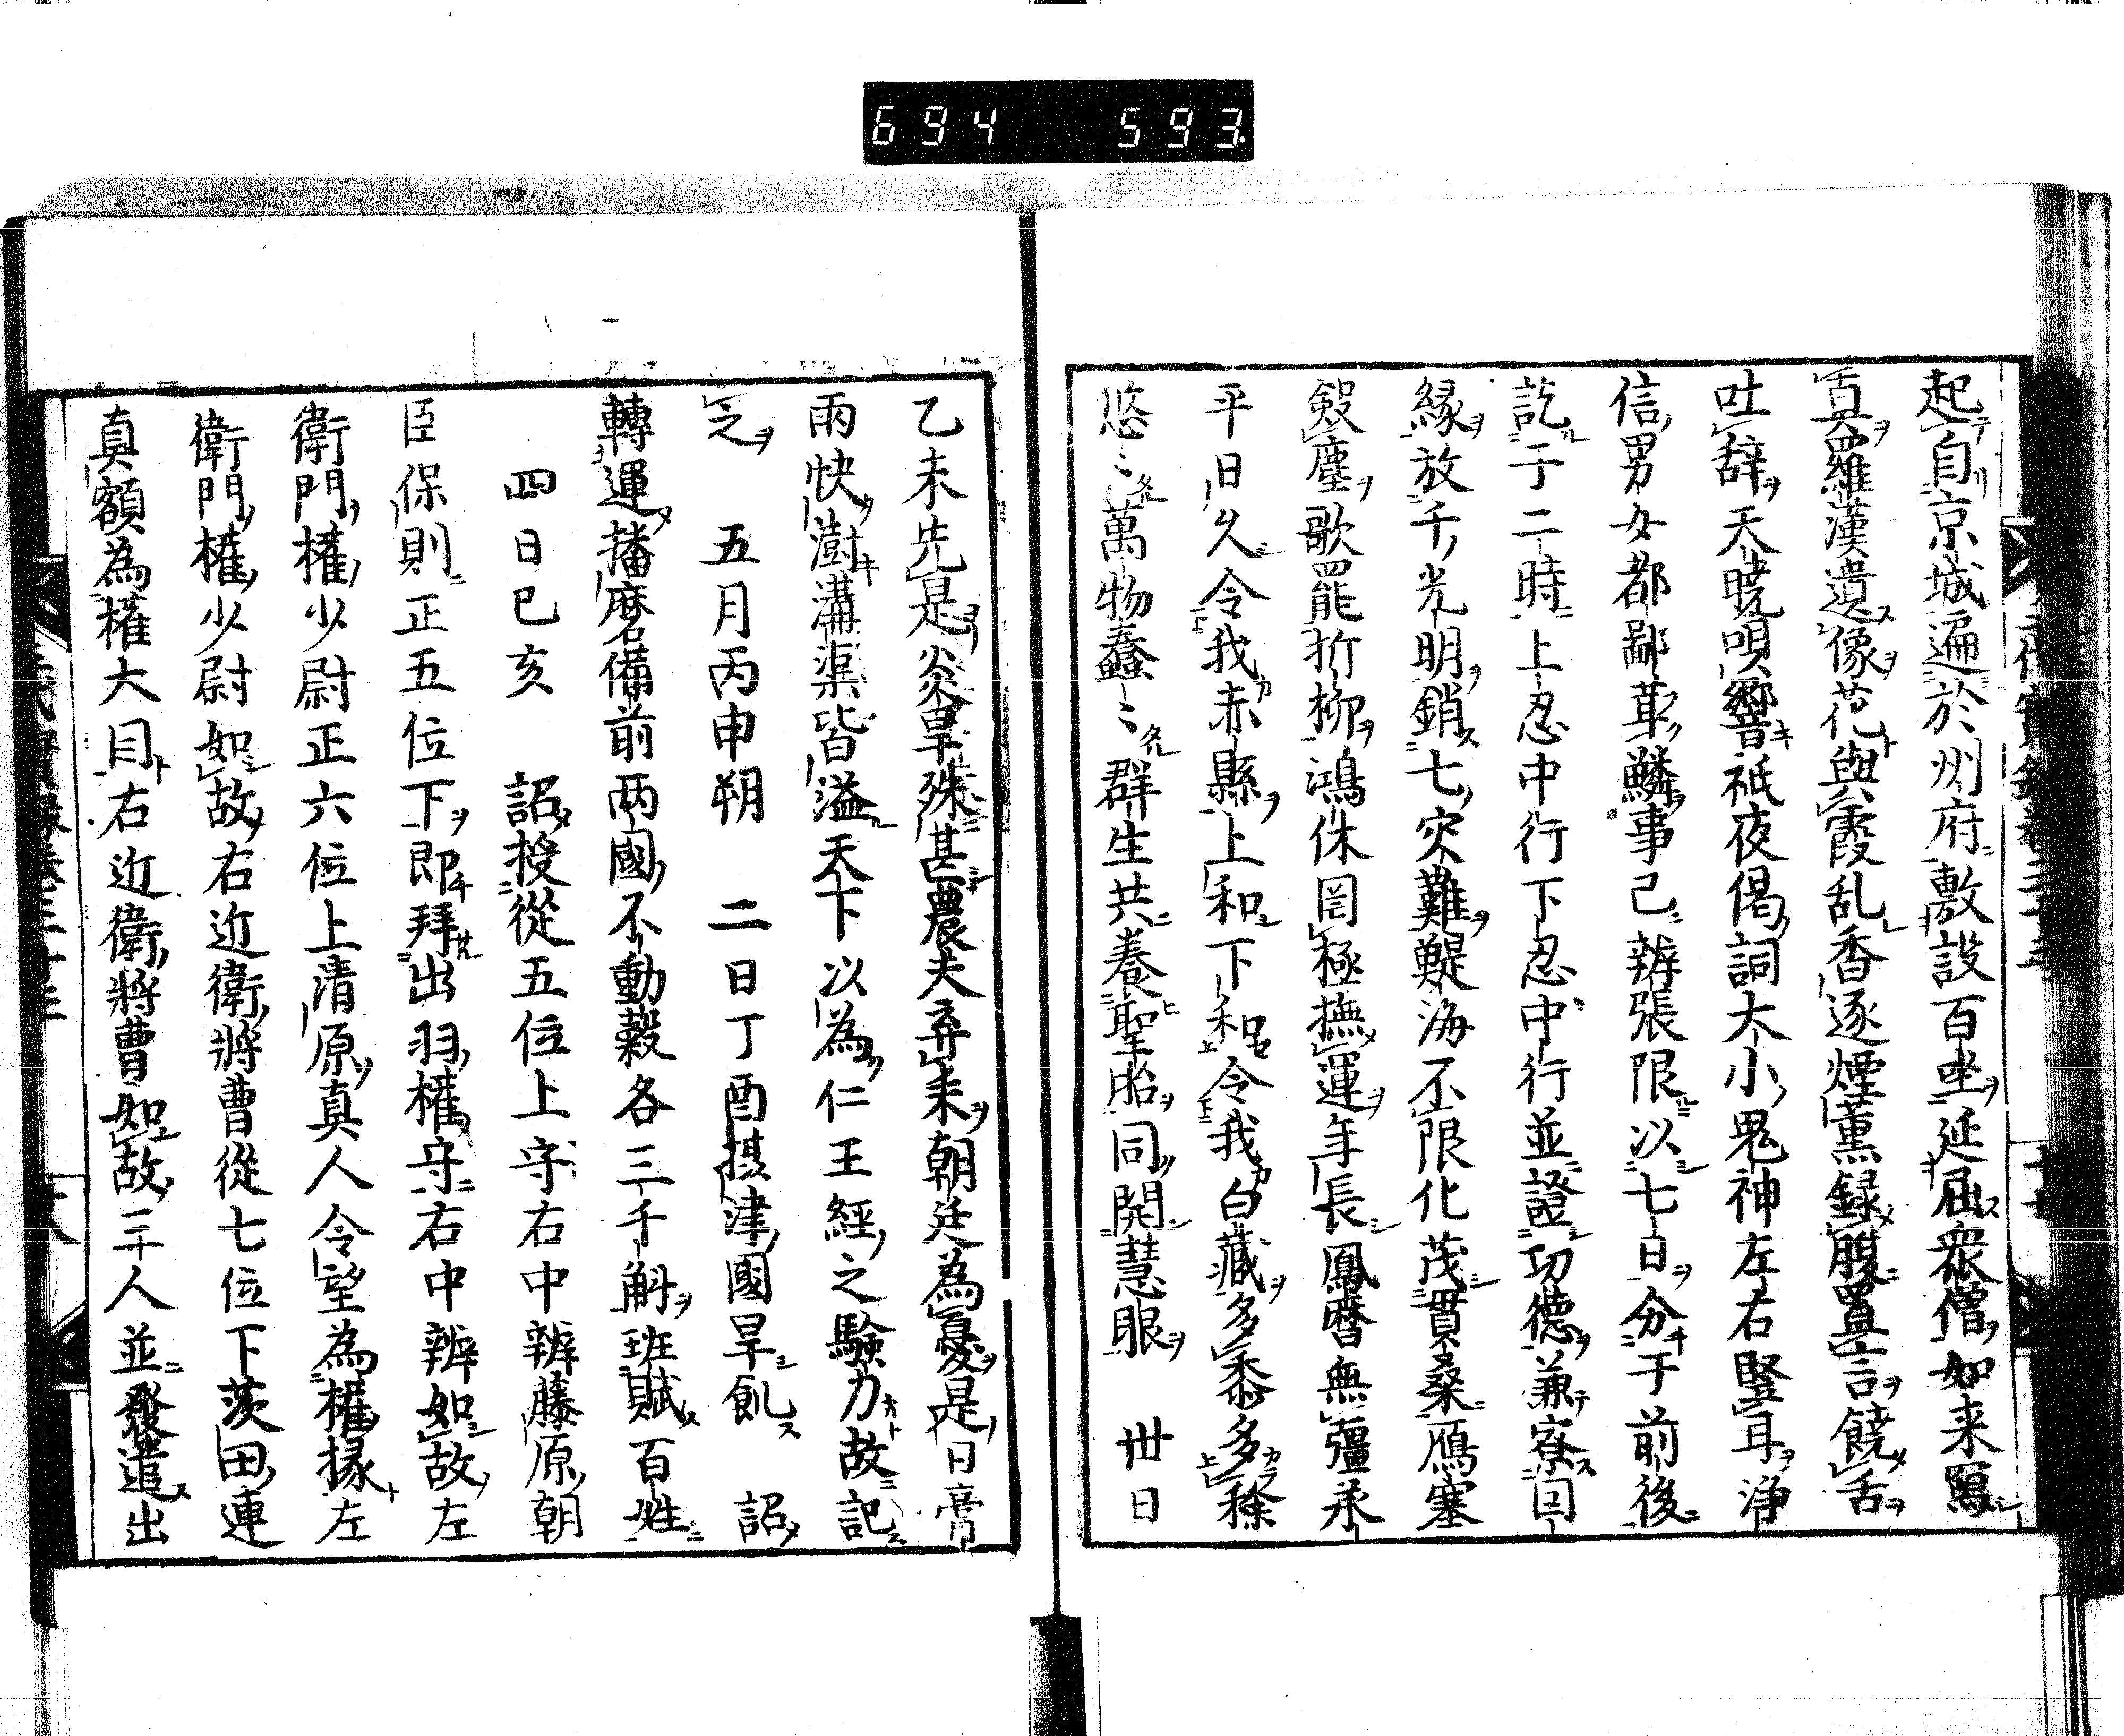 694 593
起自京城遍於州府敷設百坐延屈衆僧如来寫
真羅漢遺像花與霞乱香逐煙薫録腹置言饒舌
吐辞天暁唄響祇夜偈詞大小鬼神左右竪耳浄
信男女都鄙鱗事已辨張限以七日分于前後
訖于二時上忍中行下忍中行並證功徳兼寮因
縁放千光明銷七灾難鯷海不限化茂貫桑鴈塞
塵歌罷折柳鴻休罔極撫運年長鳳暦無彊承
平日久令我赤縣上和下和令我白藏多黍多稌
悠〻萬物蠢〻群生共養聖胎同開慧眼 丗日
乙未先是炎旱殊甚農夫弃耒朝廷為憂是日膏
雨快澍溝渠皆溢天下以為仁王經之験力故記
之 五月丙申朔 二日丁酉摂津國旱飢 詔
轉運播磨備前两國不動穀各三千斛班賑百姓
四日己亥 詔授從五位上守右中辨藤原朝
臣保則正五位下即拜出羽權守右中辨如故左
衛門權少尉正六位上清原真人令望為權掾左
衛門權少尉如故右近衛將曹從七位下茨田連
真額為權大目右近衛將曹如故三人並發遣出